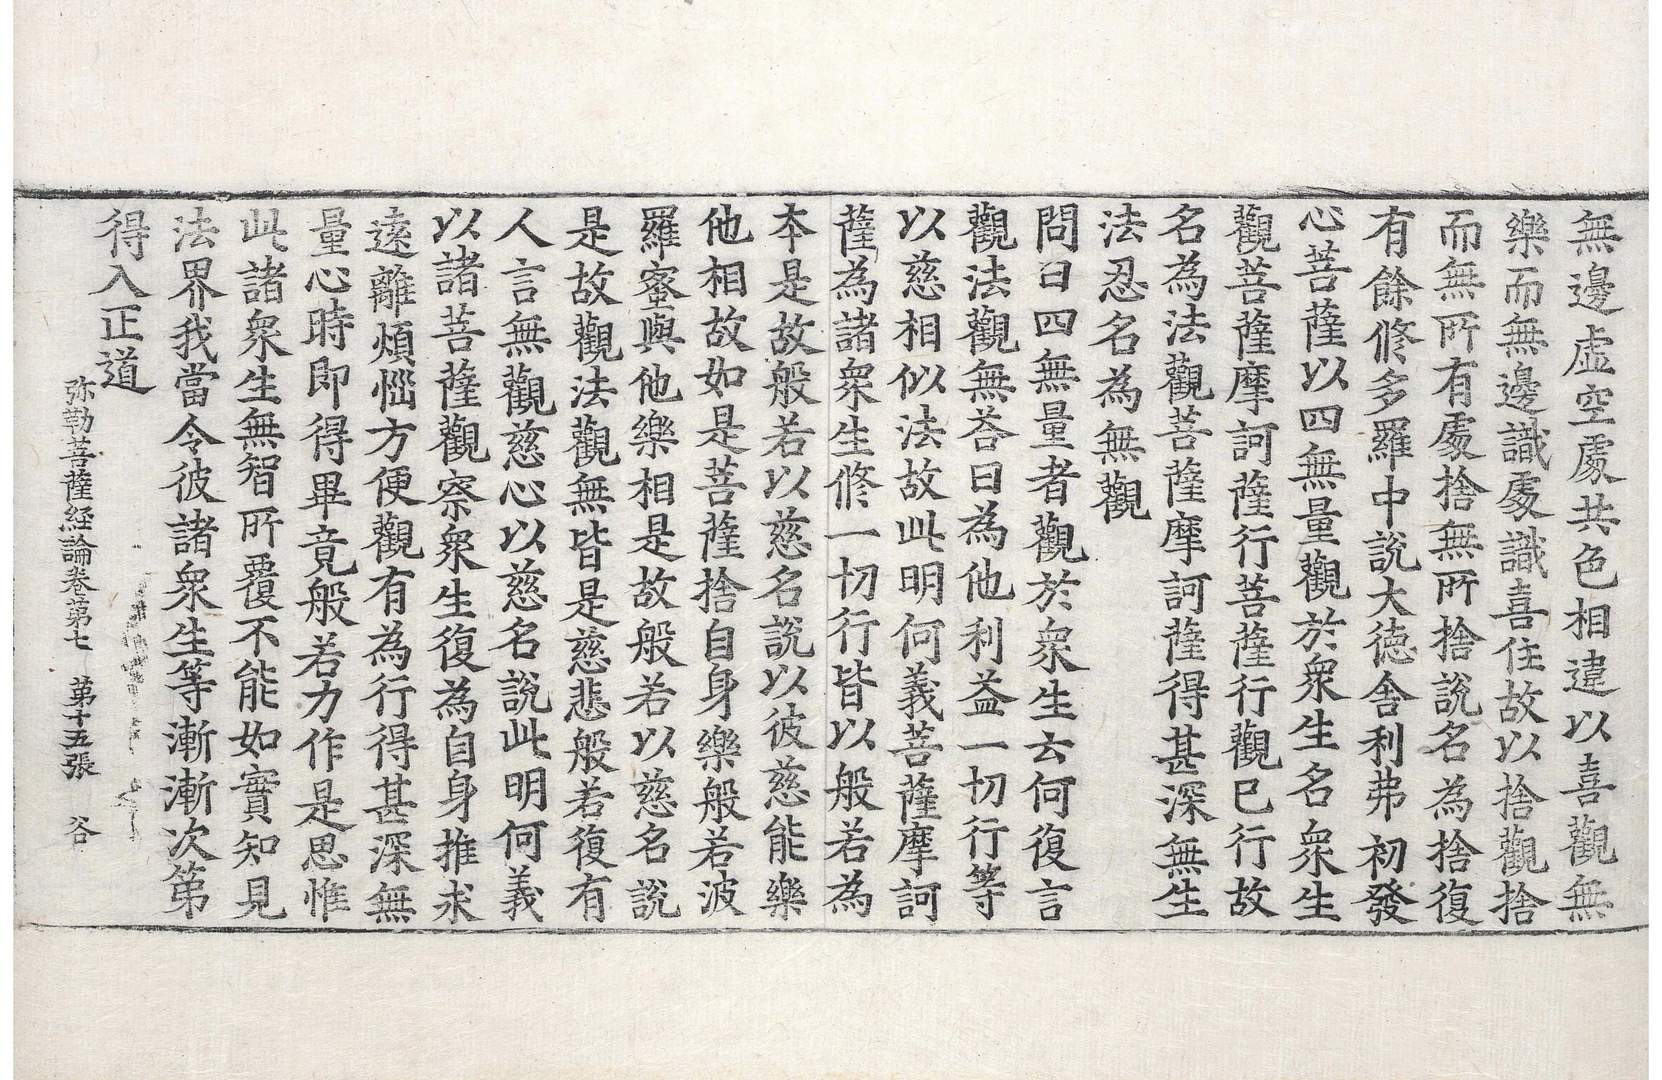 無邊虛空處共色相違以喜觀無
樂而無邊識處識喜住故以捨觀捨
而無所有處捨無所捨說名為捨復
有餘修多羅中說大徳舎利弗初發
心菩薩以四無量觀於衆生名衆生
觀菩薩摩訶薩行菩薩行觀已行故
名為法觀菩薩摩訶薩得甚深無生
法忍名為無觀
問曰四無量者觀於衆生云何復言
觀法觀無荅曰為他利益一切行等
以慈相似法故此明何義菩薩摩訶
薩為諸衆生修一切行皆以般若為
本是故般若以慈名說以彼慈能樂
他相故如是菩薩捨自身樂般若波
羅蜜與他樂相是故般若以慈名說
是故觀法觀無皆是慈悲般若復有
人言無觀慈心以慈名說此明何義
以諸菩薩觀察衆生復為自身推求
遠離煩惱方便觀有為行得甚深無
量心時即得畢竟般若力作是思惟
此諸衆生無智所覆不能如實知見
法界我當令彼諸衆生等漸漸次第
得入正道
弥勒菩薩経論卷第七 第十五張 谷